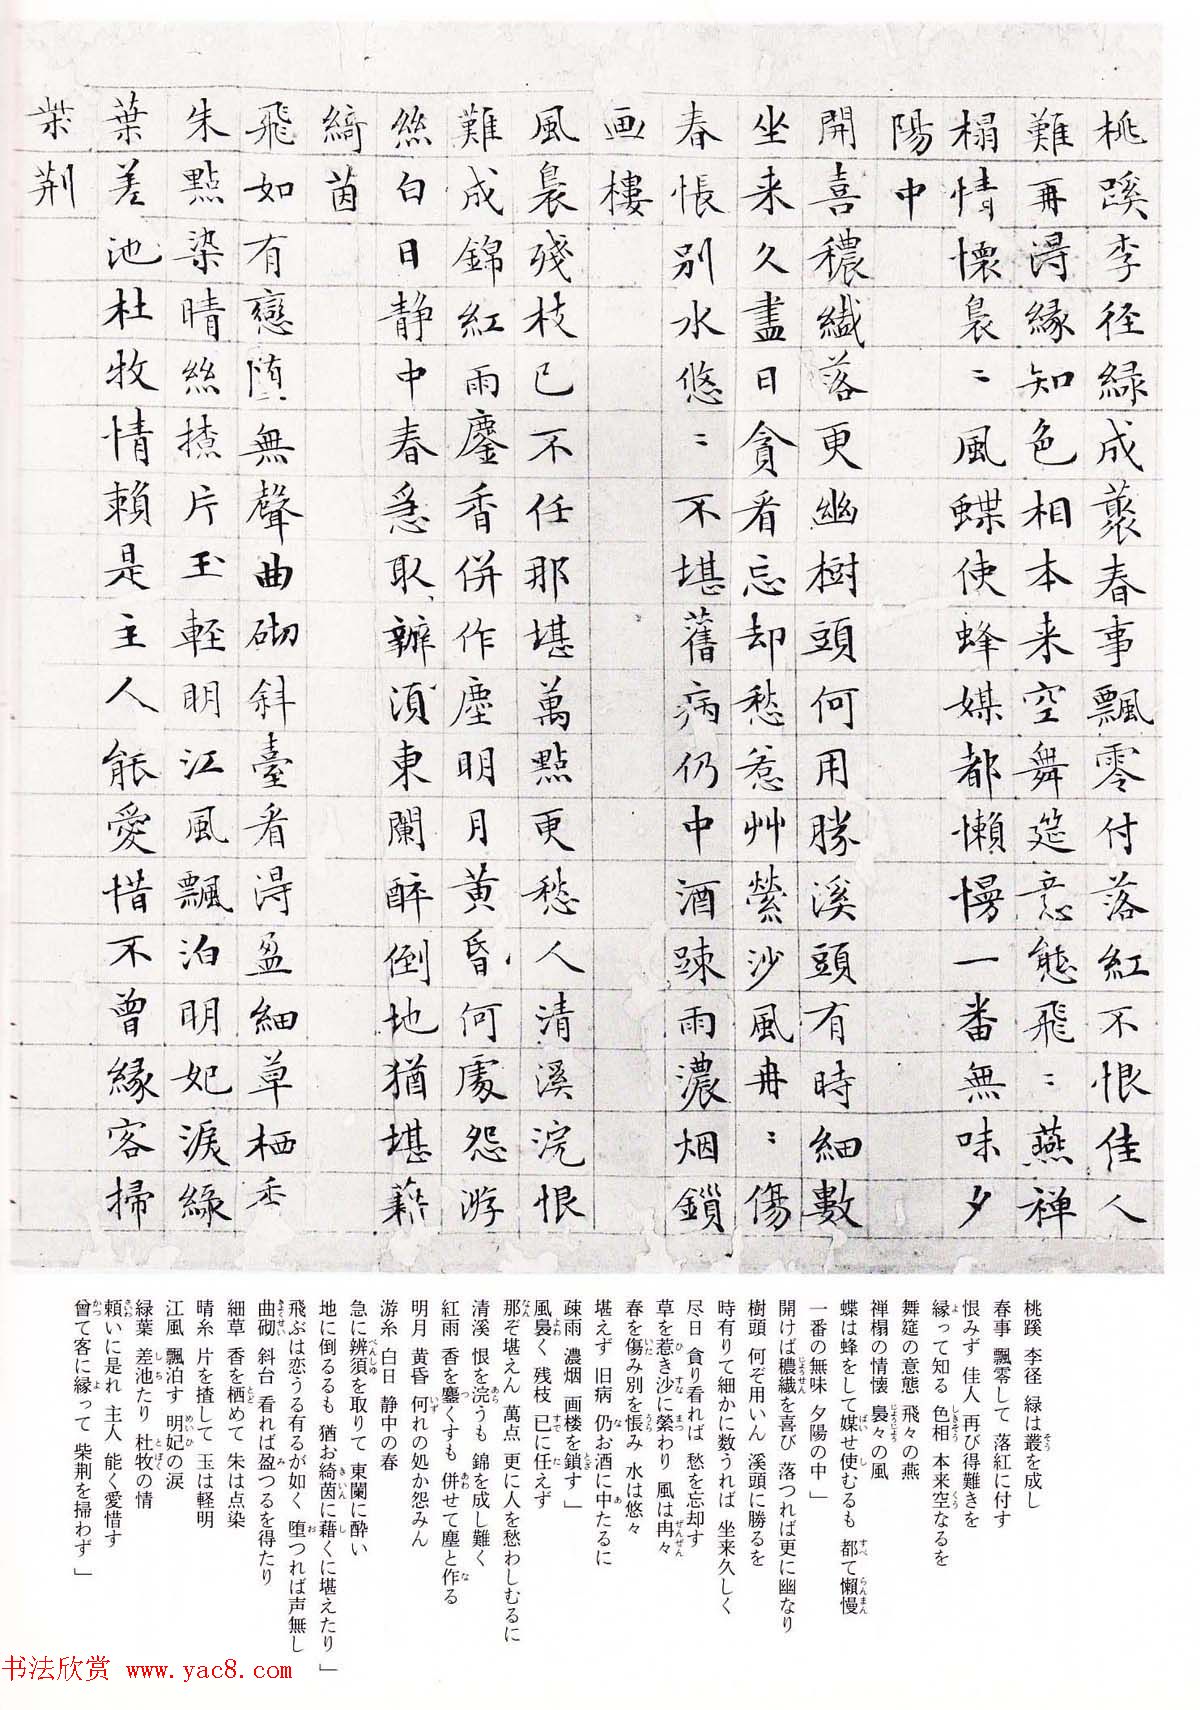 桃蹊李径緑成藂春事飄零付落紅不恨佳人
難再淂縁知色相本来空舞筵意態飛〻燕禅
榻情懷裊〻風蝶使蜂媒都懶慢一番無味夕
陽中
開喜穠纖落更幽樹頭何用勝溪頭有時細數
坐来久盡日貪看忘却愁惹艸縈沙風冉〻傷
春悵別水悠〻不堪舊病仍中酒踈雨濃烟鎖
画樓
風裊殘枝已不任那堪萬點更愁人清溪浣恨
難成錦紅雨鏖香併作塵明月黄昏何處怨游
絲白日静中春急取辦湏東闌醉倒地猶堪藉
綺茵
飛如有戀堕無聲曲砌斜臺看淂盈細草栖香
朱點染晴絲揸片玉輕明江風飄泊明妃淚緑
葉差池杜牧情賴是主人能愛惜不曽縁客掃
柴荆
桃蹊 李径 緑は叢を成し
春事 飄零して 落紅に付す
恨みず 佳人 再び得難きを
縁って知る 色相 本来空なるを
舞筵の意態 飛々の燕
禅榻の情懐 裊々の風
蝶は蜂をして媒せ使むるも 都て懶慢
一番の無味 夕陽の中」
開けば穠繊を喜び 落つれば更に幽なり
樹頭 何ぞ用いん 溪頭に勝るを
時有りて細かに数うれば 坐来久しく
尽日 貪り看れば 愁を忘却す
草を惹き沙に縈わり 風は冉々
春を傷み別を悵み 水は悠々
堪えず 旧病 仍お酒に中たるに
疎雨 濃烟 画楼を鎖す」
風裊く 残枝 已に任えず
那ぞ堪えん 萬点 更に人を愁わしむるに
清溪 恨を浣うも 錦を成し難く
紅雨 香を鏖くすも 併せて塵と作る
明月 黄昏 何れの処か怨みん
游糸 白日 静中の春
急に辨須を取りて 東闌に酔い
地に倒るるも 猶お綺茵に藉くに堪えたり」
飛ぶは恋うる有るが如く 堕つれば声無し
曲砌 斜台 看れば盈つるを得たり
細草 香を栖めて 朱は点染
晴糸 片を揸して 玉は軽明
江風 飄泊す 明妃の涙
緑葉 差池たり 杜牧の情
頼いに是れ 主人 能く愛惜す
曾て客に縁って 柴荆を掃わず」
书法欣赏 www.yac8.com